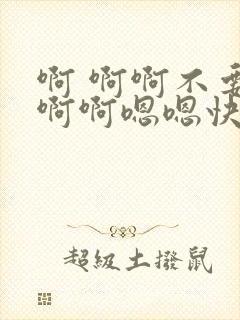 啊 啊啊不要
啊啊嗯嗯快
超級土撥鼠